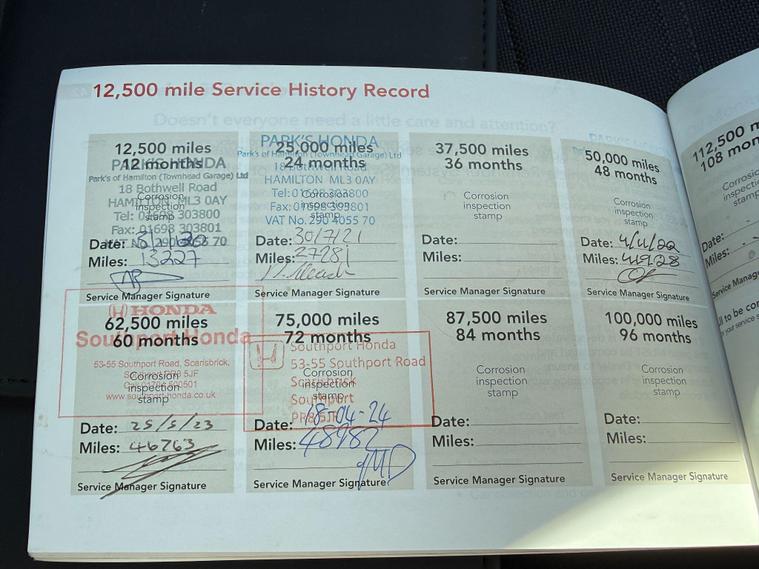 12,500 mile Service History Record
Doesn't everyone need a little care and attention?
12,500 miles
12 months
PARK'S HONDA
Park's of Hamilton (Townhead Garage) Ltd
18 Bothwell Road
HAMILTON ML3 0AY
Tel: 01698 303800
Fax: 01698 303801
Corrosion
inspection
stamp
Date:
Miles: 13227
Service Manager Signature
25,000 miles
24 months
PARK'S HONDA
Park's of Hamilton (Townhead Garage) Ltd
18 Bothwell Road
HAMILTON ML3 0AY
Tel: 01698 303800
Fax: 01698 303801
VAT No. 290 4055 70
Corrosion
inspection
stamp
Date: 30/7/21
Miles: 27281
Service Manager Signature
37,500 miles
36 months
Corrosion
inspection
stamp
Date:
Miles:
Service Manager Signature
50,000 miles
48 months
Corrosion
inspection
stamp
Date: 4/11/22
Miles: 41928
Service Manager Signature
112,500 m
108 mon
Corrosio
inspec
Date:
Miles:
Service Manag
62,500 miles
60 months
HONDA
Southport Honda
53-55 Southport Road, Scarisbrick,
www.southport.honda.co.uk
Corrosion
inspection
stamp
Date: 25/5/23
Miles: 46763
Service Manager Signature
75,000 miles
72 months
Southport Honda
53-55 Southport Road
Scarisbrick
Southport
PR8 5JF
Corrosion
inspection
stamp
Date: 18-04-24
Miles: 48982
Service Manager Signature
87,500 miles
84 months
Corrosion
inspection
stamp
Date:
Miles:
Service Manager Signature
100,000 miles
96 months
Corrosion
inspection
stamp
Date:
Miles:
Service Manager Signature